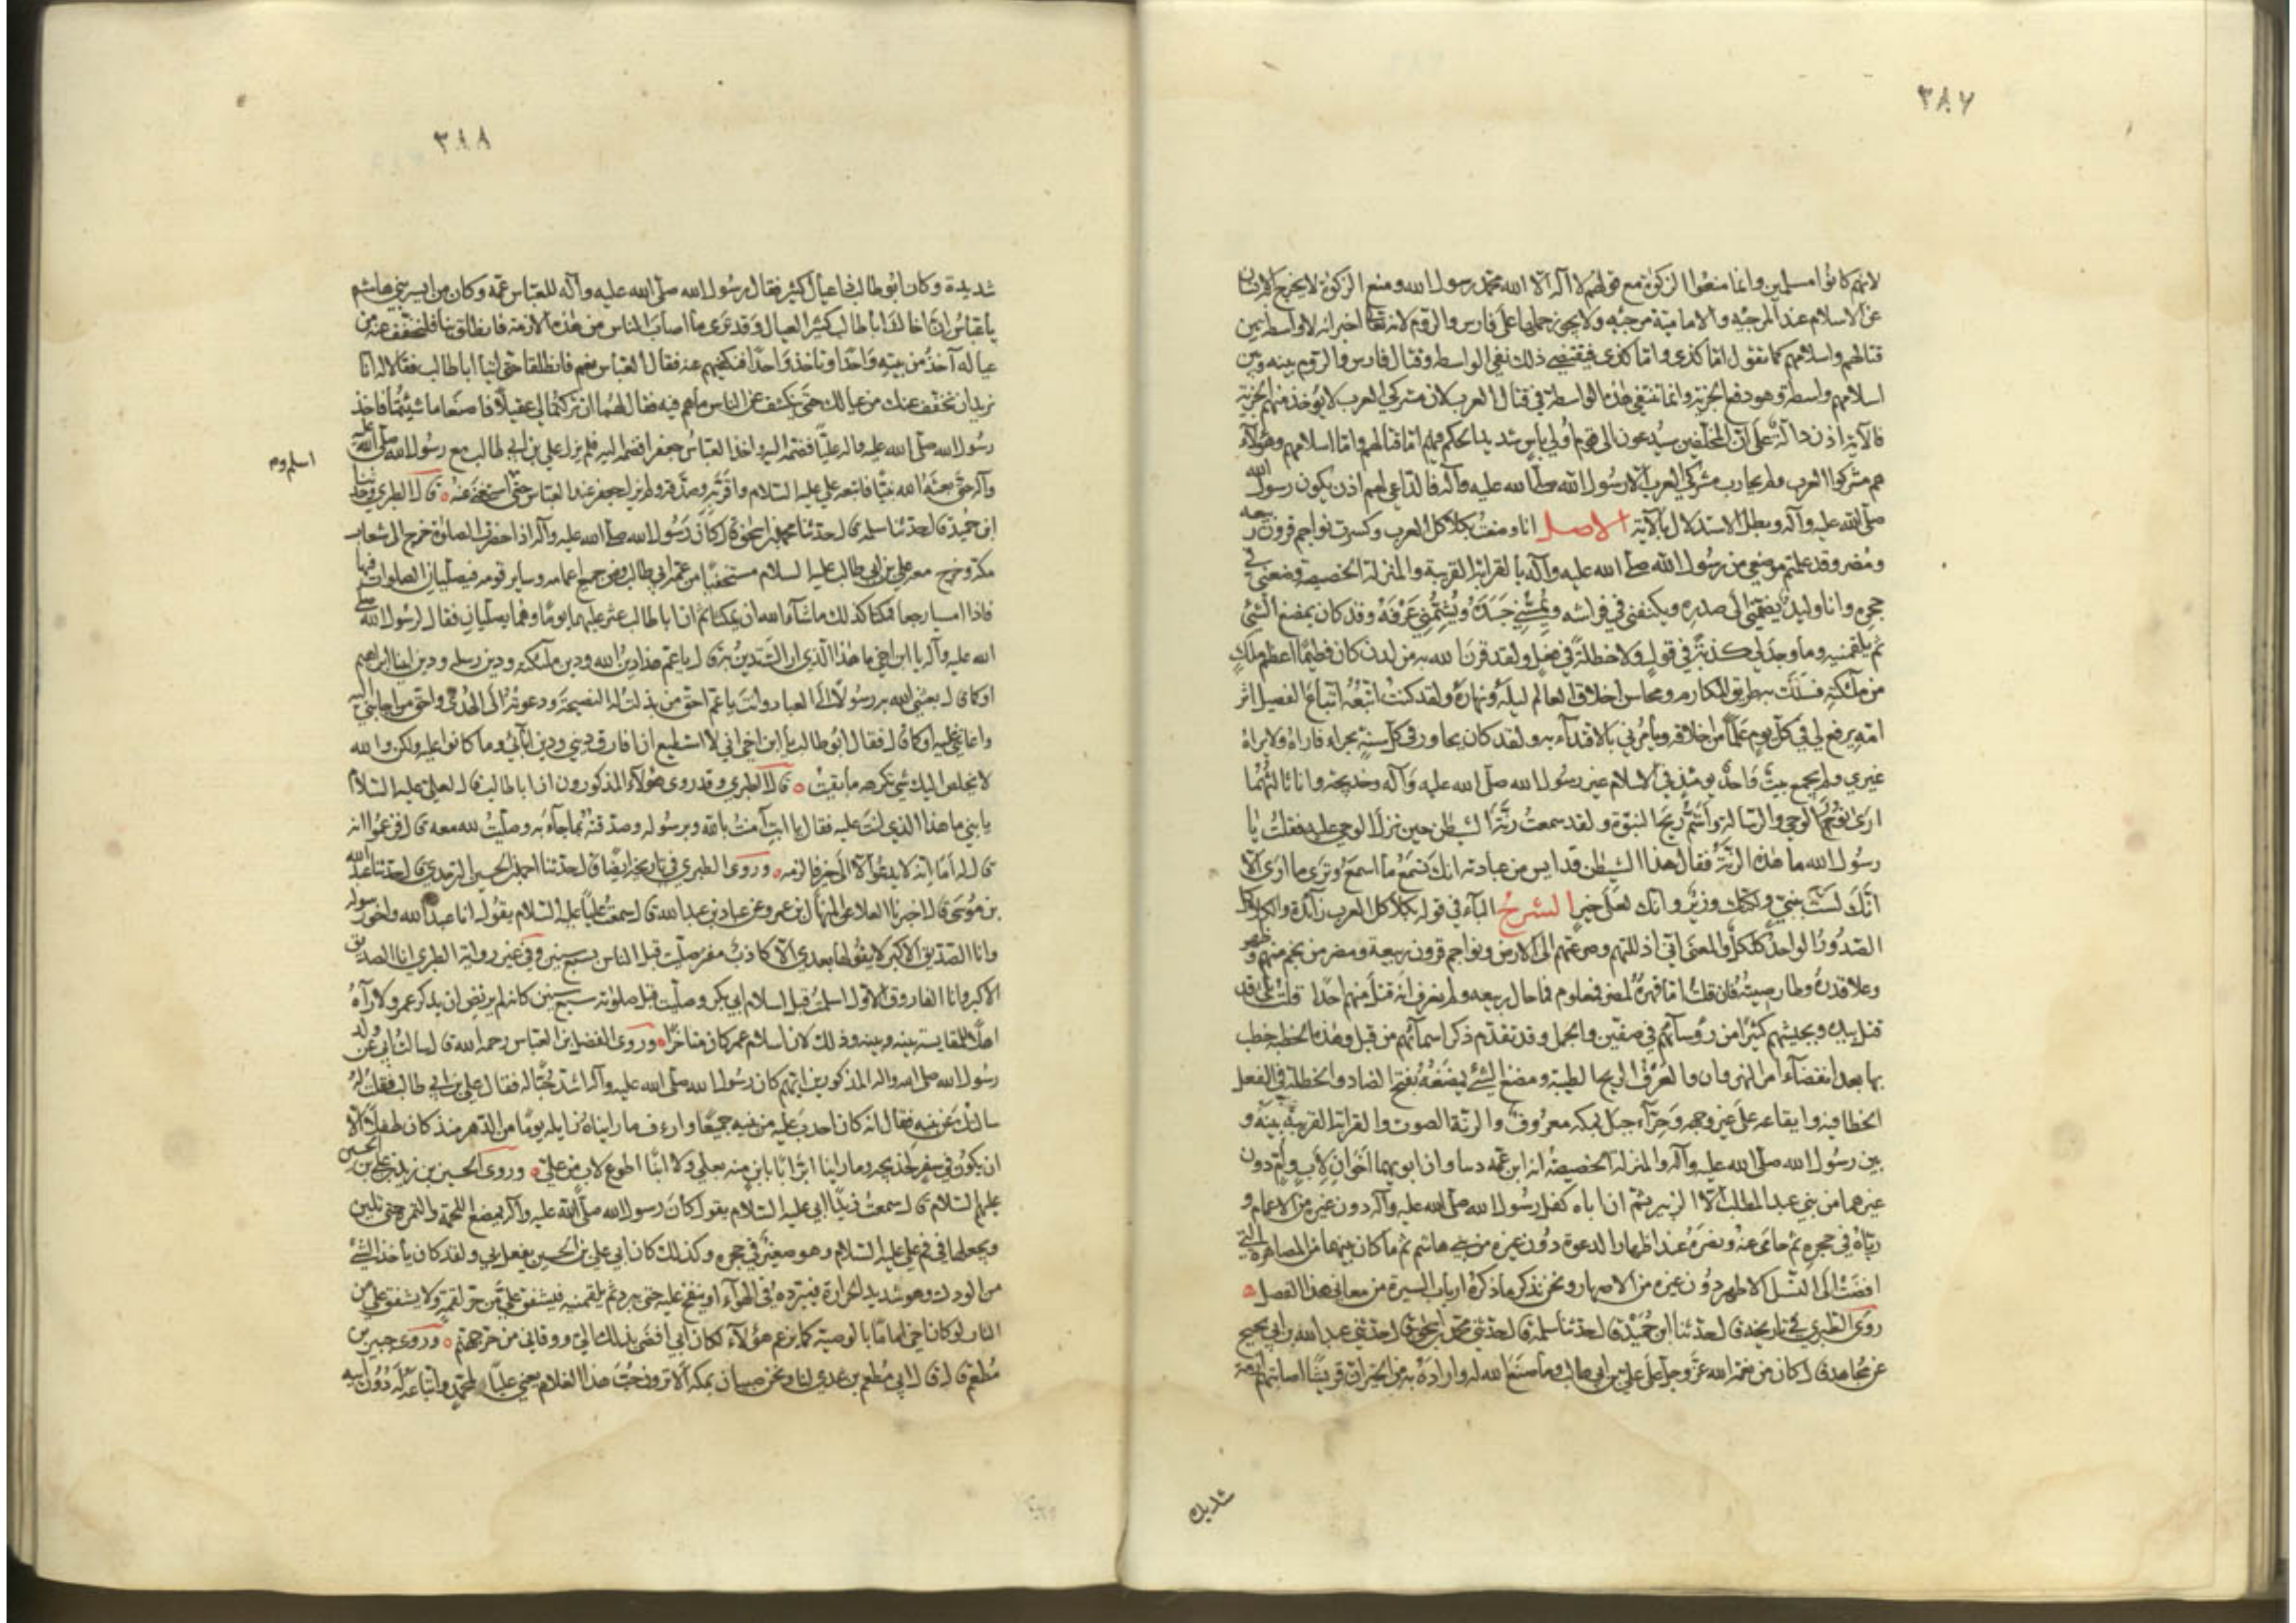 ٣٨٧
لانهم كانوا مسلمين وانما منعوا الزكوة مع قولهم لا اله الا الله محمد رسول الله ومنع الزكوة لا يخرج الانسان
عن الاسلام عند المرجئه والامامية مرجئه ولا يجوز حملها على فارس والروم لانه تعالى اخبر انه لا واسطة بين
قتالهم واسلامهم كما تقول اما كذى واما كذى فيقتضي ذلك نفي الواسطة وقتال فارس والروم بينه وبين
اسلامهم واسطة وهو دفع الجزية وانما تنتفي هذه الواسطة في قتال العرب لان مشركي العرب لا يؤخذ منهم الجزية
فالآية اذن دالة على ان المخلفين سيدعون الى قوم أولي بأس شديد الحكم فيهم اما قتالهم واما اسلامهم وهؤلآء
هم مشركوا العرب ولم يحارب مشركي العرب الا رسول الله صلى الله عليه وآله فالداعي لهم اذن يكون رسول الله
صلى الله عليه وآله ويبطل الاستدلال بالآية الاصل انا وضعت بكلاكل العرب وكسرت نواجم قرون ربيعه
ومضر وقد علمتم موضعي من رسول الله صلى الله عليه وآله بالقرابة القريبة والمنزلة الخصيصة وضعني في
حجره وانا وليد يضمني الى صدره ويكنفني في فراشه ويمسني جسده ويشمني عرفه وقد كان يمضغ الشئ
ثم يلقمنيه وما وجد لي كذبة في قول ولا خطلة في فعل ولقد قرن الله به من لدن كان فطيما اعظم ملك
من ملائكته يسلك به طريق المكارم ومحاسن اخلاق العالم ليله ونهاره ولقد كنت اتبعه اتباع الفصيل اثر
امه يرفع لي في كل يوم علما من اخلاقه ويأمرني بالاقتدآء به ولقد كان يجاور في كل سنة بحراء فاراه ولا يراه
غيري ولم يجمع بيت واحد يومئذ في الاسلام غير رسول الله صلى الله عليه وآله وخديجة وانا ثالثهما
ارى نور الوحي والرسالة وأشم ريح النبوة ولقد سمعت رنة الشيطن حين نزل الوحي عليه فقلت يا
رسول الله ما هذه الرنة فقال هذا الشيطن قد ايس من عبادته انك تسمع ما اسمع وترى ما ارى الا
انك لست بنبي ولكنك وزير وانك لعلى خير الشرح البآء في قوله بكلاكل العرب زائدة والكلاكل
الصدور الواحد كلكل والمعنى اني اذللتهم وصرعتهم الى الارض ونواجم قرون ربيعة ومضر من نجم منهم وظهر
وعلا قدره وطار صيته فان قلت اما قهره لمضر فمعلوم فما حال ربيعه ولم نعرف انه قتل منهم احدا قلت بلى قد
قتل بيده وبجيشه كثيرا من رؤسآئهم في صفين والجمل وقد تقدم ذكر اسمآئهم من قبل وهذه الخطبة خطب
بها بعد انقضآء امر النهروان والعرف الريح الطيبة ومضغ الشئ يمضغه بفتح الضاد والخطلة في الفعل
الخطا فيه وايقاعه على غير وجهه وحرآء جبل بمكه معروف والرنة الصوت والقرابة القريبة بينه و
بين رسول الله صلى الله عليه وآله والمنزلة الخصيصة انه ابن عمه دنيا وان ابويهما اخوان لاب وأم دون
غيرهما من بني عبد المطلب الا الزبير ثم ان اباه كفل رسول الله صلى الله عليه وآله دون غيره من الاعمام و
رباه في حجره ثم حامى عنه ونصره عند اظهار الدعوة دون غيره من بني هاشم ثم ما كان بينهما من المصاهرة التي
افضت الى النسل الاطهر دون غيره من الاصهار ونحن نذكر ما ذكره ارباب السيرة من معاني هذا الفصل
روى الطبري في تاريخه قال حدثنا ابن حميد قال حدثنا سلمة قال حدثني محمد بن اسحق قال حدثني عبد الله بن ابي نجيح
عن مجاهد قال كان من نعمة الله عز وجل على علي بن ابي طالب وما صنع الله له واراده به من الخير ان قريشا اصابتهم ازمة
شديدة
٣٨٨
شديدة وكان ابو طالب ذا عيال كثير فقال رسول الله صلى الله عليه وآله للعباس عمه وكان من ايسر بني هاشم
يا عباس ان اخاك ابا طالب كثير العيال وقد ترى ما اصاب الناس من هذه الازمة فانطلق بنا فلنخفف عنه من
عياله آخذ من بيته واحدا وتاخذ واحدا فنكفيهم عنه فقال العباس نعم فانطلقا حتى اتيا ابا طالب فقالا له انا
نريد ان نخفف عنك من عيالك حتى ينكشف عن الناس ما هم فيه فقال لهما ان تركتما لي عقيلا فاصنعا ما شئتما فاخذ
رسول الله صلى الله عليه واله عليا فضمه اليه واخذ العباس جعفرا فضمه اليه فلم يزل علي بن ابي طالب مع رسول الله صلى الله عليه
وآله حتى بعثه الله نبيا فاتبعه علي عليه السلام واقر به وصدقه ولم يزل جعفر عند العباس حتى استغنى عنه قال الطبري وحدثنا
اسلم وم
ابن حميد قال حدثنا سلمة قال حدثنا محمد بن اسحق قال كان رسول الله صلى الله عليه وآله اذا حضرت الصلوة خرج الى شعاب
مكة وخرج معه علي بن ابي طالب عليه السلام مستخفيا من عمه ابي طالب ومن جميع اعمامه وساير قومه فيصليان الصلوات فيها
فاذا امسيا رجعا فمكثا كذلك ما شآء الله ان يمكثا ثم ان ابا طالب عثر عليهما يوما وهما يصليان فقال لرسول الله صلى
الله عليه وآله يا ابن اخي ما هذا الذي اراك تدين به قال يا عم هذا دين الله ودين ملآئكته ودين رسله ودين ابينا ابراهيم
او كما قال بعثني الله به رسولا الى العباد وانت يا عم احق من بذلت له النصيحة ودعوته الى الهدى واحق من اجابني اليه
واعانني عليه او كما قال فقال ابو طالب يا ابن اخي اني لا استطيع ان افارق ديني ودين ابآئي وما كانوا عليه ولكن والله
لا يخلص اليك شئ تكرهه ما بقيت قال الطبري وقد روى هؤلآء المذكورون ان ابا طالب قال لعلي عليه السلام
يا بني ما هذا الذي انت عليه فقال يا ابت آمنت بالله وبرسوله وصدقته بما جآء به وصليت لله معه قال فزعموا انه
قال له اما انه لا يدعو الا الى خير فالزمه وروى الطبري في تاريخه ايضا قال حدثنا احمد بن الحسين الترمذي قال حدثنا عبد الله
بن موسى قال اخبرنا العلا عن المنهال بن عمرو عن عباد بن عبد الله قال سمعت عليا عليه السلام يقول انا عبد الله واخو رسوله
وانا الصديق الاكبر لا يقولها بعدي الا كاذب مفتر صليت قبل الناس بسبع سنين وفي غير رواية الطبري انا الصديق
الاكبر وانا الفاروق الاول اسلمت قبل اسلام ابي بكر وصليت قبل صلوته سبع سنين كانه لم يرتض ان يذكر عمر ولا رآه
اهلا للمقايسة بينه وبينه وذلك لان اسلام عمر كان متاخرا وروى الفضل ابن العباس رحمه الله قال سالت ابي عن ولد
رسول الله صلى الله واله المذكورين ايهم كان رسول الله صلى الله عليه وآله اشد حبا له فقال علي بن ابي طالب فقلت له
سالتك عن بنيه فقال انه كان احب عليه من بنيه جميعا وارءف ما رايناه زايله يوما من الدهر منذ كان طفلا الا
ان يكون في سفر لخديجه وما راينا ابا ابر بابن منه بعلي ولا ابنا اطوع لاب من علي وروى الحسين بن زيد بن علي بن الحسين
عليهم السلام قال سمعت زيدا ابي عليه السلام يقول كان رسول الله صلى الله عليه وآله يمضغ اللحمة والتمرة حتى تلين
ويجعلها في فم علي عليه السلام وهو صغير في حجره وكذلك كان ابي علي بن الحسين يفعل بي ولقد كان يأخذ الشئ
من الورك وهو شديد الحرارة فيبرده في الهوآء او ينفخ عليه حتى يبرد ثم يلقمنيه فيشفق علي من حر لقمة ولا يشفق علي من
النار لو كان اخي اماما بالوصية كما يزعم هؤلآء لكان ابي افضى بذلك الي ووقاني من حر جهنم وروى جبير بن
مطعم قال قال ابي مطعم بن عدي لنا ونحن صبيان بمكه الا ترون حب هذا الغلام يعني عليا لمحمد واتباعه له دون ابيه